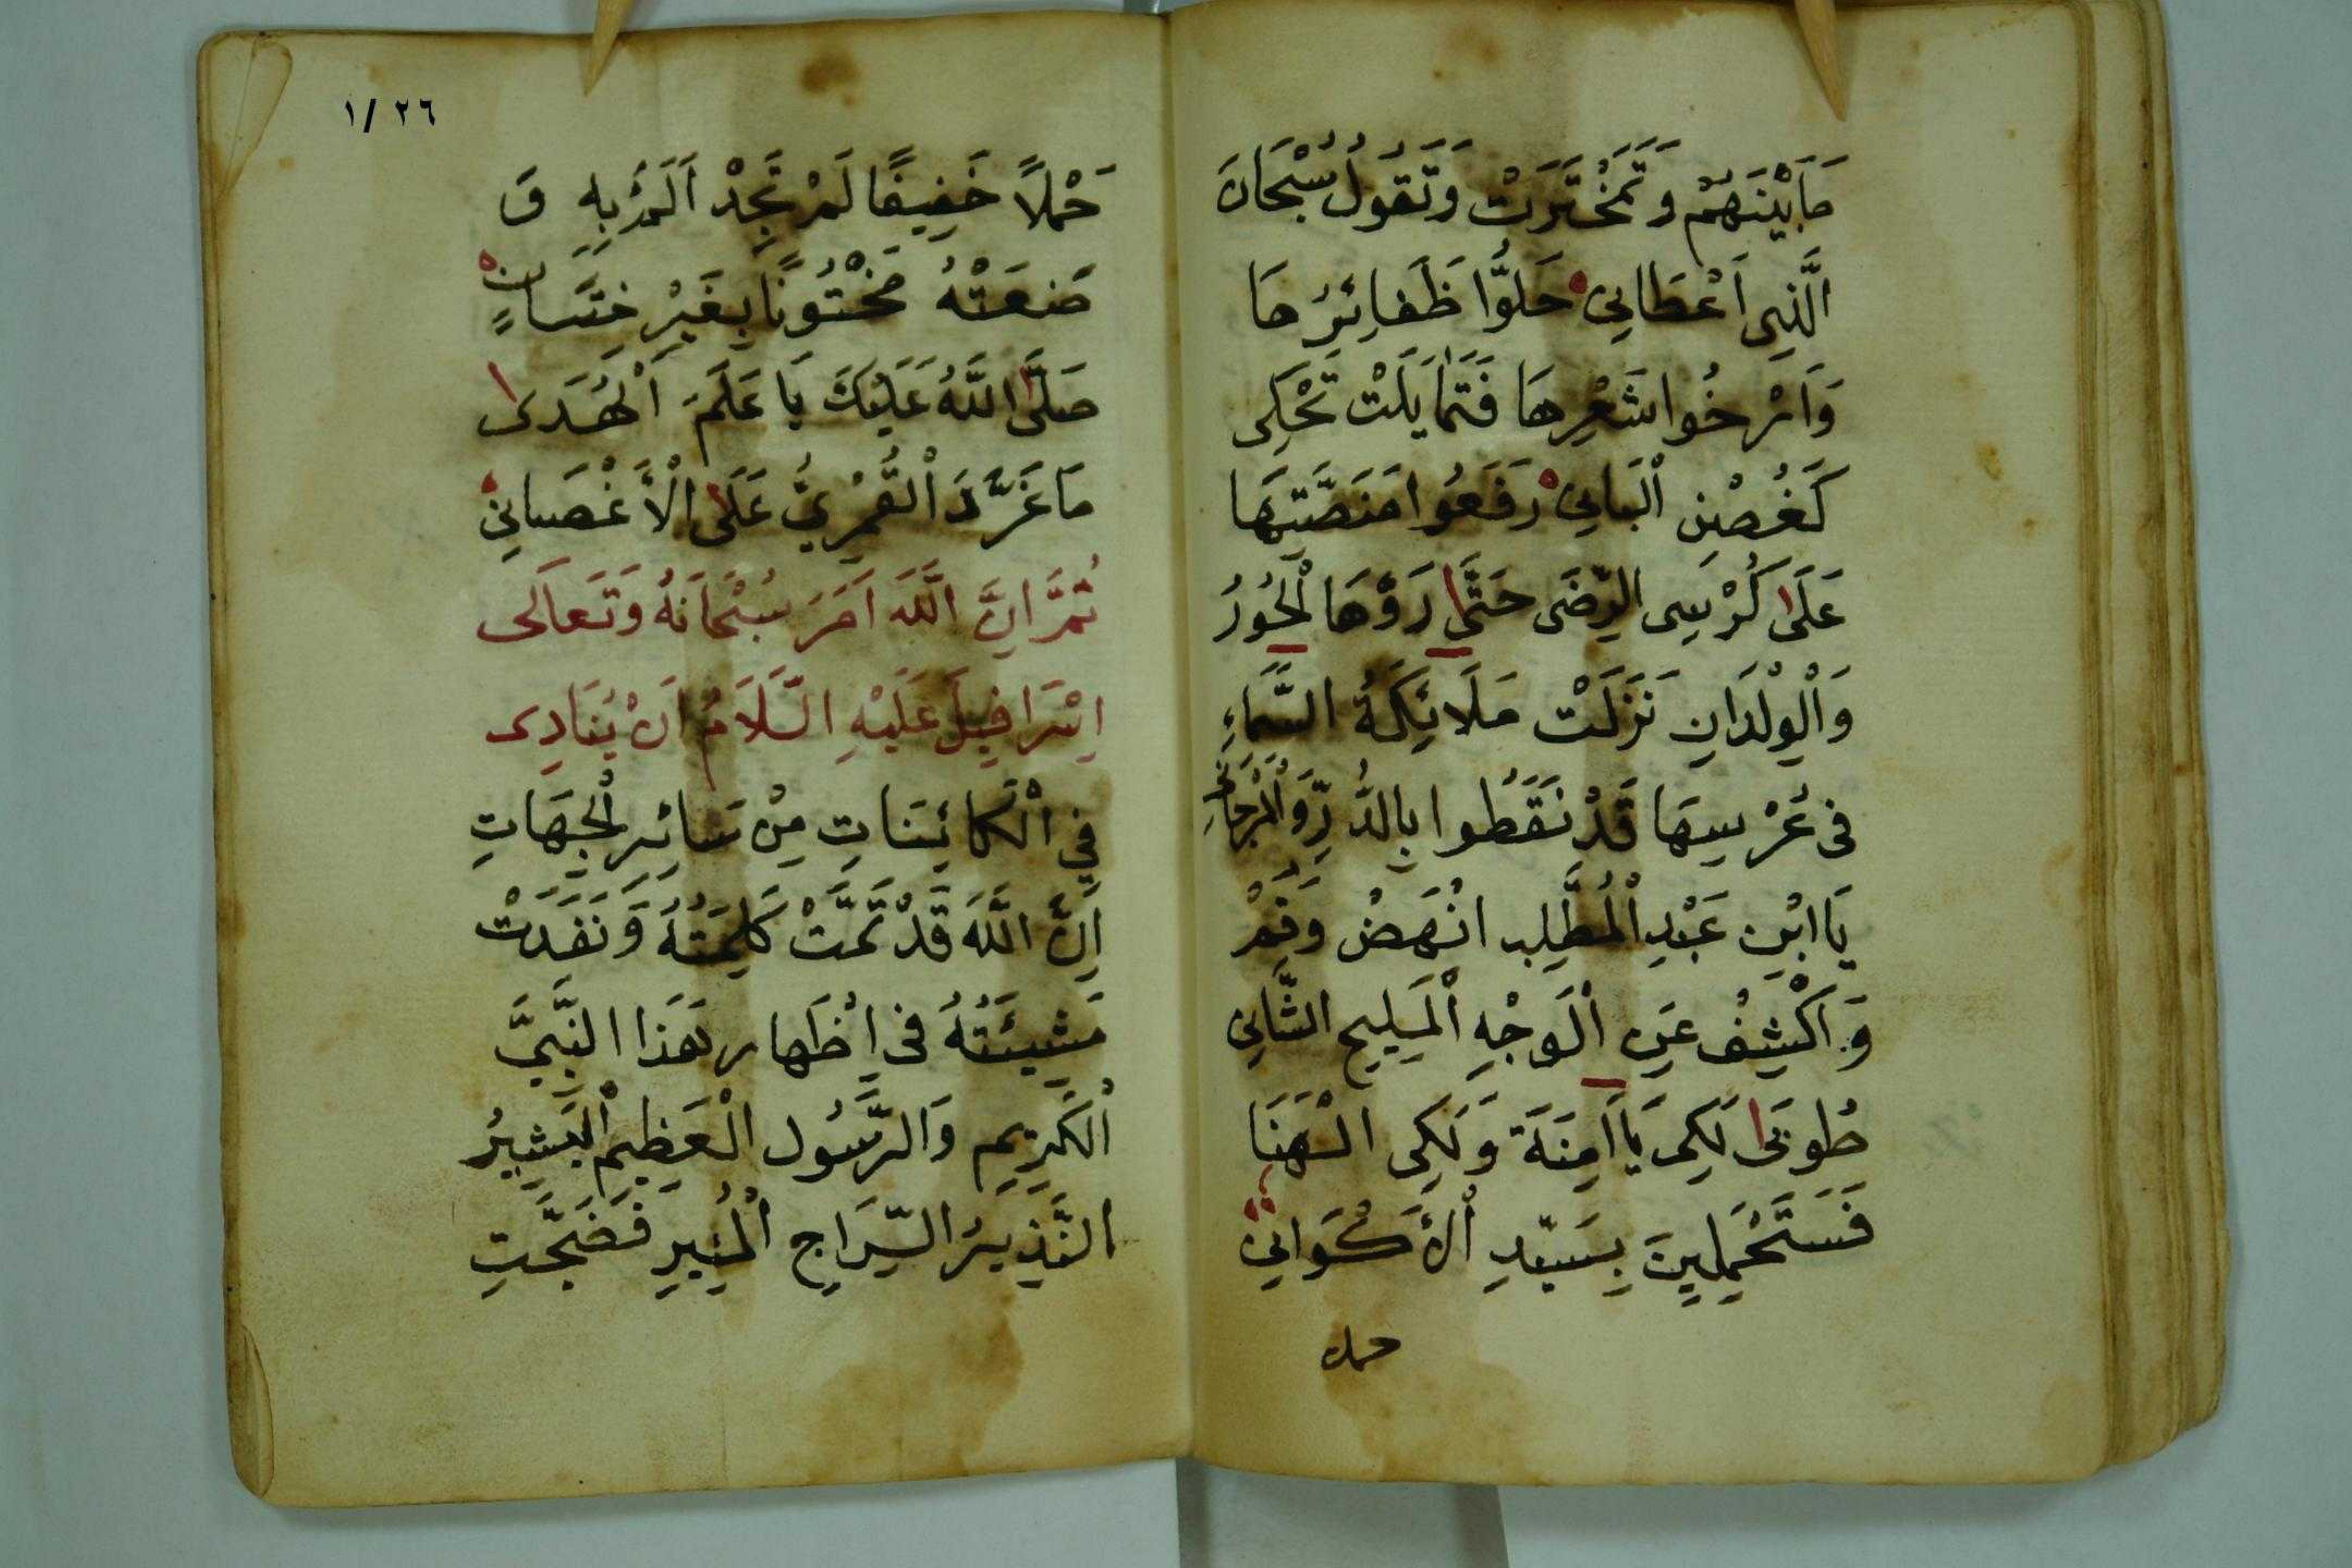 مَابَيْنَهُمْ وَتَمَخْتَرَتْ وَتَقُولُ سُبْحَانَ
الَّذِي اَعْطَانِي حَلُّوا ظَفَائِرُهَا
وَاَرْخُوا شَعْرِهَا فَتَمَايَلَتْ تَحْكِى
كَغُصْنِ اَلْبَانِي رَفَعُوا مَنَصَّتِهَا
عَلَى كُرْسِى الرِّضَى حَتَّى رَوْهَا الْحُورُ
وَالْوِلْدَانِ نَزَلَتْ مَلَائِكَةُ السَّمَاءِ
فى عُرْسِهَا قَدْ نَقَطُوا بِالدُّرِّ وَالْمَرْجَانِ
يَا ابْنِ عَبْدِ الْمُطَّلِبِ انْهَضْ وَقُمْ
وَاكْشِفْ عَنِ اَلْوَجْهِ اَلْمَلِيحِ الثَّانِى
طُوبَى لَكِى يَا اَمِنَة وَلَكِى الْهَنَا
فَسَتَحْمِلِينَ بِسَيّدِ اْلأَكْوَانِي
حملا
١/٢٦
حَمْلاً خَفِيفًا لَمْ تَجِدْ اَلَمًا بِهِ وَ
ضَعَتْهُ مَخْتُونًا بِغَيْرِ خِتَانٍ
صَلَّى اللَّهُ عَلَيْكَ يَا عَلَمَ اَلْهُدَى
مَا غَرَّدَ اْلقُمْرِيُّ عَلَى اْلأَغْصَانِ
ثُمَّ اِنَّ اللَّهَ اَمَرَ سُبْحَانَهُ وَتَعَالَى
اِسْرَافِيلَ عَلَيْهِ السَّلَامُ اَنْ يُنَادِى
فِي اْلكَائِنَاتِ مِنْ سَائِرِ الْجِهَاتِ
اِنَّ اللَّهَ قَدْ تَمَّتْ كَلِمَتُهُ وَنَفَدَتْ
مَشِيئَتُهُ فى اِظْهَارِ هَذَا النَّبِيِّ
اْلكَرِيمِ وَالرَّسُولِ الْعَظِيمِ اْلبَشِيرُ
النَّذِيرُ السِّرَاجِ اْلمُنِيرِ فَضَجَّتِ